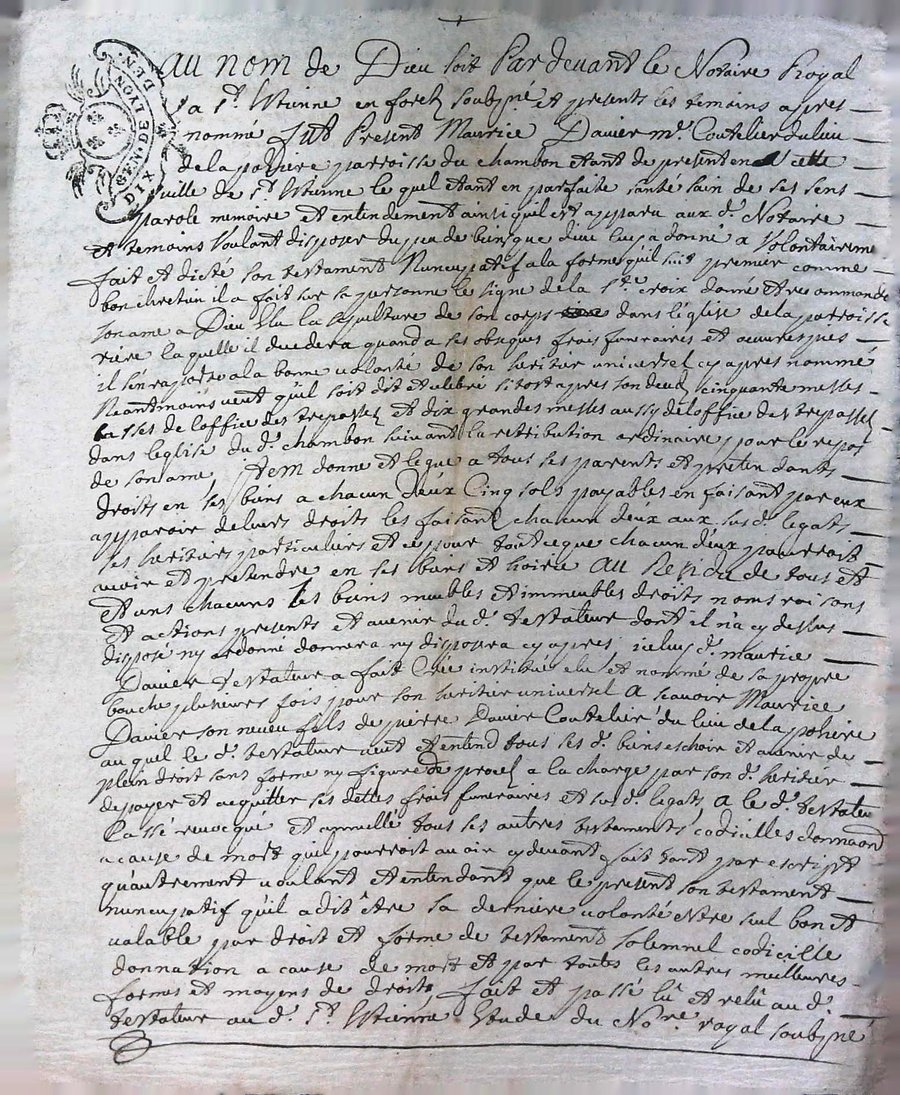 GEN. DE LYON. DIX DEN.
Au nom de Dieu soit Par devant le Notaire Royal
a St. Etienne en forez soubzné et presents les temoins apres
nommé fut Present Maurice Davier me. Coutelier du lieu
de la poïiere parroisse du chambon etant de present en cette
ville de st. Etienne le quel etant en parfaite santé sain de ses sens
parole memoire et entendement ainsi quil est apparu aux d. Notaire
et temoins voulant disposer du peu de bien que dieu luy a donné a volontaireme
fait et dicté son testament Nuncupatif a la forme quil suit premier comme
bon chretien il a fait sur sa personne le signe de la ste. croix donné et recommandé
son ame a Dieu Elu la sepulture de son corps dans l'eglise de la parroisse
riere la quelle il decedera quand a ses obseques frais funeraires et oeuvres pies
il s'en raporte a la bonne volonté de son heritier universel cy apres nommé
Neantmoins veut qu'il soit dit et celebré sitost apres son deces cinquante messes
basses de l'office des trepassez et dix grandes messes aussy de l'office des trepassez
dans l'eglise du d. chambon suivant la retribution ordinaire pour le repos
de son ame, Item donne et legue a tous ses parents et pretendants
droits en ses biens a chacun d'eux Cinq sols payables en faisant par eux
apparoir de leurs droits les faisant chacun d'eux aux sus d. legats
ses heritiers particuliers et ce pour tout ce que chacun d'eux pourroit
avoir et pretendre en ses biens et hoirie Au Residu de tous et
et uns chacuns Les biens meubles et immeubles droits noms raisons
et actions presents et avenir du d. testateur dont il n'a cy dessus
disposé ny ordonné donnera ny disposera cy apres, iceluy d. maurice
Davier testateur a fait Créé institué elu et nommé de sa propre
bouche plusieurs fois pour son heritier universel A scavoir Maurice
Davier son neveu fils de pierre Davier Coutelier du lieu de la poïiere
au quel le d. testateur veut et entend tous ses d. biens eschoir et avenir de
plein droit sans forme ny figure de procez a la charge par son d. heritier
de payer et acquitter ses dettes frais funeraires et sus d. legats A le d. testateu
Cassé revocqué et annullé tous ses autres testaments codicilles donnaõn
a cause de mort quil pourroit avoir cy devant fait tant par escript
qu'autrement voulant et entendant que le present son testament
nuncupatif qu'il a dit être sa derniere volonté etre seul bon et
valable par droit et forme de testament solemnel codicille
donnation a cause de mort et par toutes les autres meilleures
formes et moyens de droits fait et passé lû et relû au d.
testateur au d. St. Etienne Etude du Nore. royal soubzné